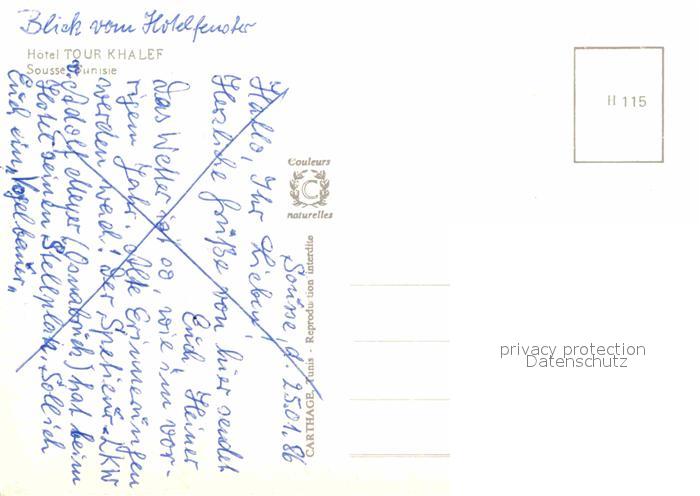 Blick vom Hotelfenster
Hotel TOUR KHALEF
Sousse Tunisie
Sousse, d. 25.01.86
Hallo, Ihr Lieben!
Herzliche Grüße von hier sendet
Euch Heiner
Das Wetter ist so, wie im vor-
rigem Jahr. Alte Erinnerungen
werden wach! Der Spediteur-LKW
v. Adolf Meyer (Osnabrück) hat beim
Hotel seinen Stellplatz. Soll ich
Euch ein „Vogelbauer"
Couleurs
C
naturelles
CARTHAGE, Tunis - Reproduction interdite
H 115
privacy protection
Datenschutz